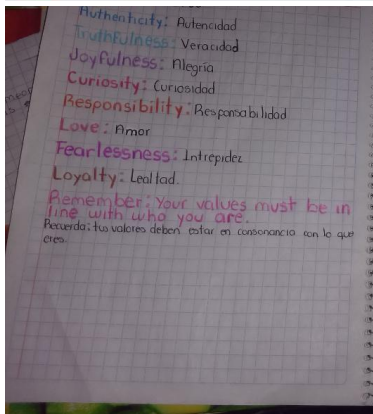 Authenticity: Autencidad
Truthfulness: Veracidad
Joyfulness: Alegria
Curiosity: Curiosidad
Responsibility: Responsabilidad
Love: Amor
Fearlessness: Intrepidez
Loyalty: Lealtad.
Remember: Your values must be in
line with who you are.
Recuerda: tus valores deben estar en consonancia con lo que
cres.